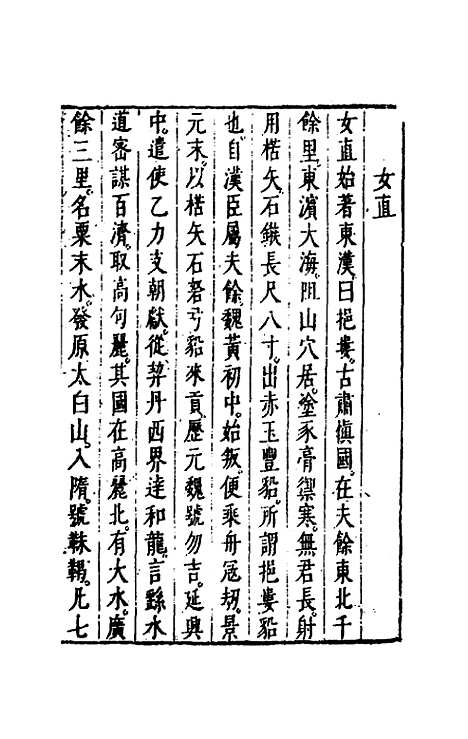 女直
女直始著東漢。曰挹婁。古肅愼國。在夫餘東北千
餘里。東濱大海。阻山穴居。塗豕膏禦寒。無君長。射
用楛矢石鏃。長尺八寸。出赤玉豐貂。所謂挹婁貂
也。自漢臣屬夫餘。魏黃初中。始叛。便乘舟寇刼。景
元末。以楛矢石砮弓貂來貢。歷元魏號勿吉。延興
中。遣使乙力支朝獻。從契丹西界達和龍。言繇水
道密謀百濟。取高句麗。其國在高麗北。有大水。廣
餘三里。名粟末水。發原太白山。入隋。號靺鞨。凡七